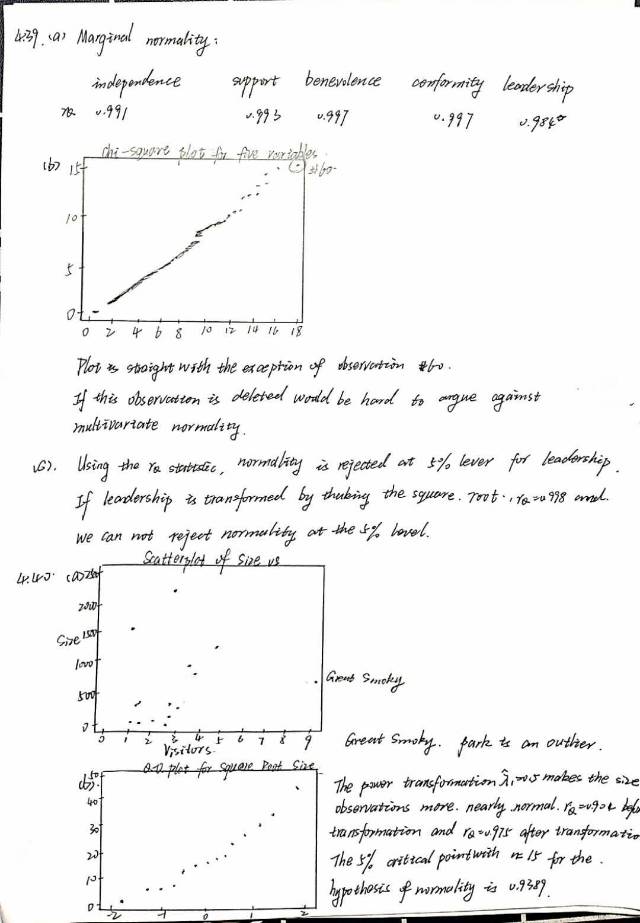 4.39. (a) Marginal normality:
independence support benevolence conformity leadership
rQ 0.991 0.993 0.997 0.997 0.984*
(b) chi-square plot for five variables
15 #60
10
5
0
0 2 4 6 8 10 12 14 16 18
Plot is straight with the exception of observation #60.
If this observation is deleted would be hard to argue against
multivariate normality.
(c). Using the rQ statistic, normality is rejected at 5% lever for leadership.
If leadership is transformed by the square. root., rQ=0.998 and.
we can not reject normality at the 5% level.
4.40. (a) Scatterplot of Size vs
2500
2000
Size 1500
1000
Great Smoky
500
0
0 1 2 3 4 5 6 7 8 9
Visitors
Great Smoky. park is an outlier.
(b). Q-Q plot for Square Root Size
50
40
30
20
10
0
-2 -1 0 1 2
The power transformation λ̂1=0.5 makes the size
observations more. nearly normal. rQ=0.904
transformation and rQ=0.975 after
The 5% critical point with n=15 for the.
hypothesis of normality is 0.9389.